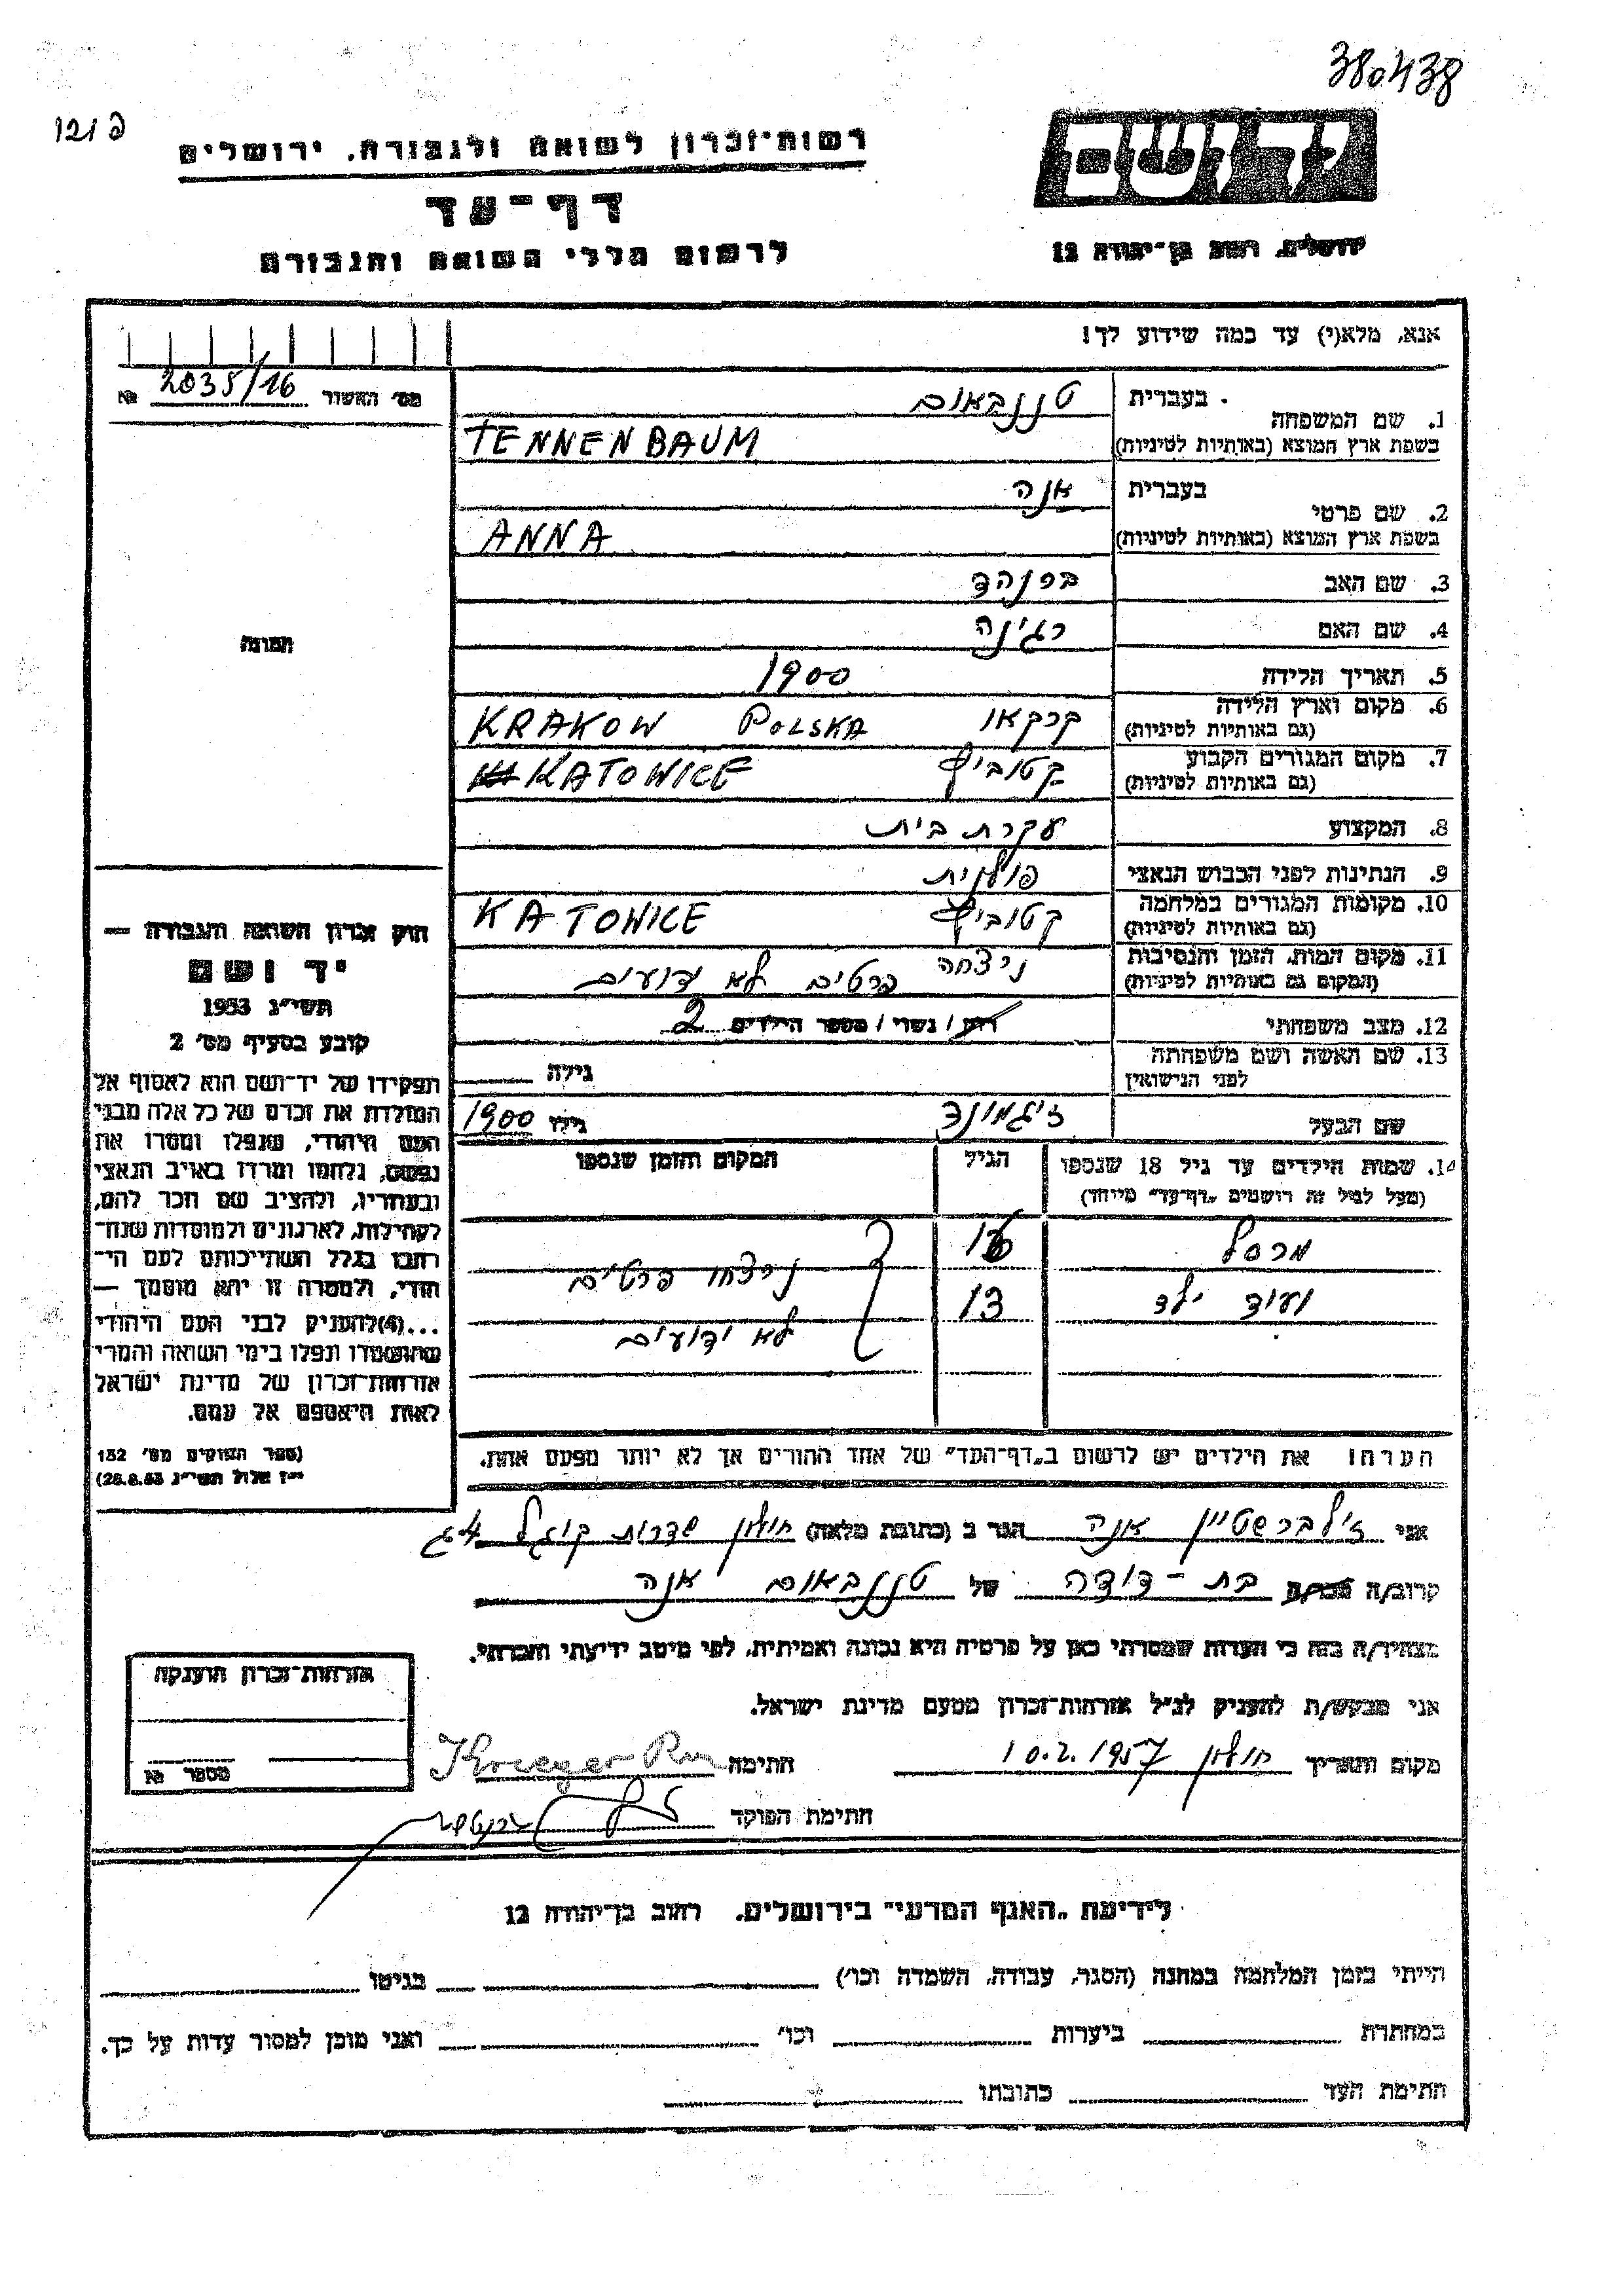 380438
פ 121
יד ושם
ירושלים, רחוב בן־יהודה 12
רשות־זכרון לשואה ולגבורה, ירושלים
דף־עד
לרשום חללי השואה והגבורה
אנא, מלא(י) עד כמה שידוע לך!
מס׳ האשור 2035/16 №
1. שם המשפחה
בעברית טננבאום
בשפת ארץ המוצא (באותיות לטיניות) TENNENBAUM
2. שם פרטי
בעברית אנה
בשפת ארץ המוצא (באותיות לטיניות) ANNA
3. שם האב
4. שם האם רגינה
5. תאריך הלידה 1900
6. מקום וארץ הלידה קרקאו POLSKA KRAKOW
(גם באותיות לטיניות)
7. מקום המגורים הקבוע קטוביץ KATOWICE
(גם באותיות לטיניות)
8. המקצוע עקרת בית
9. הנתינות לפני הכבוש הנאצי פולנית
10. מקומות המגורים במלחמה קטוביץ KATOWICE
(גם באותיות לטיניות)
11. מקום המות, הזמן והנסיבות ניצחה פרטים לא ידועים
(המקום גם באותיות לטיניות)
12. מצב משפחתי רווק / נשוי / מספר הילדים 2
13. שם האשה ושם משפחתה
לפני הנישואין
גילה
שם הבעל זיגמונד גילו 1900
14. שמות הילדים עד גיל 18 שנספו
(מעל לגיל זה רושמים „דף־עד״ מיוחד)
הגיל
המקום והזמן שנספו
מרסל 16
ועוד ילד 13
ניצחו פרטים
לא ידועים
הערה! את הילדים יש לרשום ב„דף־העד״ של אחד ההורים אך לא יותר מפעם אחת.
תמונה
חוק זכרון השואה והגבורה —
יד ושם
תשי״ג 1953
קובע בסעיף מס׳ 2
תפקידו של יד־ושם הוא לאסוף אל
המולדת את זכרם של כל אלה מבני
העם היהודי, שנפלו ומסרו את
נפשם, נלחמו ומרדו באויב הנאצי
ובעוזריו, ולהציב שם וזכר להם,
לקהילות, לארגונים ולמוסדות שנח־
רבו בגלל השתייכותם לעם הי־
הודי, ולמטרה זו יהא מוסמך —
...(4) להעניק לבני העם היהודי
שהושמדו ונפלו בימי השואה והמרי
אזרחות־זכרון של מדינת ישראל
לאות היאספם אל עמם.
(ספר החוקים מס׳ 132
י״ז אלול תשי״ג 28.8.53)
אני זילברשטיין אנה הגר ב (כתובת מלאה) חולון שדרות קוגל 4ג
קרוב/ה מכר/ה בת-דודה של טננבאום אנה
מצהיר/ה בזה כי העדות שמסרתי כאן על פרטיה היא נכונה ואמיתית, לפי מיטב ידיעתי והכרתי.
אני מבקש/ת להעניק לנ״ל אזרחות־זכרון מטעם מדינת ישראל.
מקום ותאריך חולון 10.2.1957 חתימה
חתימת הפוקד
אזרחות־זכרון הוענקה
מספר №
לידיעת „האגף המדעי״ בירושלים, רחוב בן־יהודה 12
הייתי בזמן המלחמה במחנה (הסגר, עבודה, השמדה וכו׳) בגיטו
במחתרת ביערות וכו׳ ואני מוכן למסור עדות על כך.
חתימת העד כתובתו